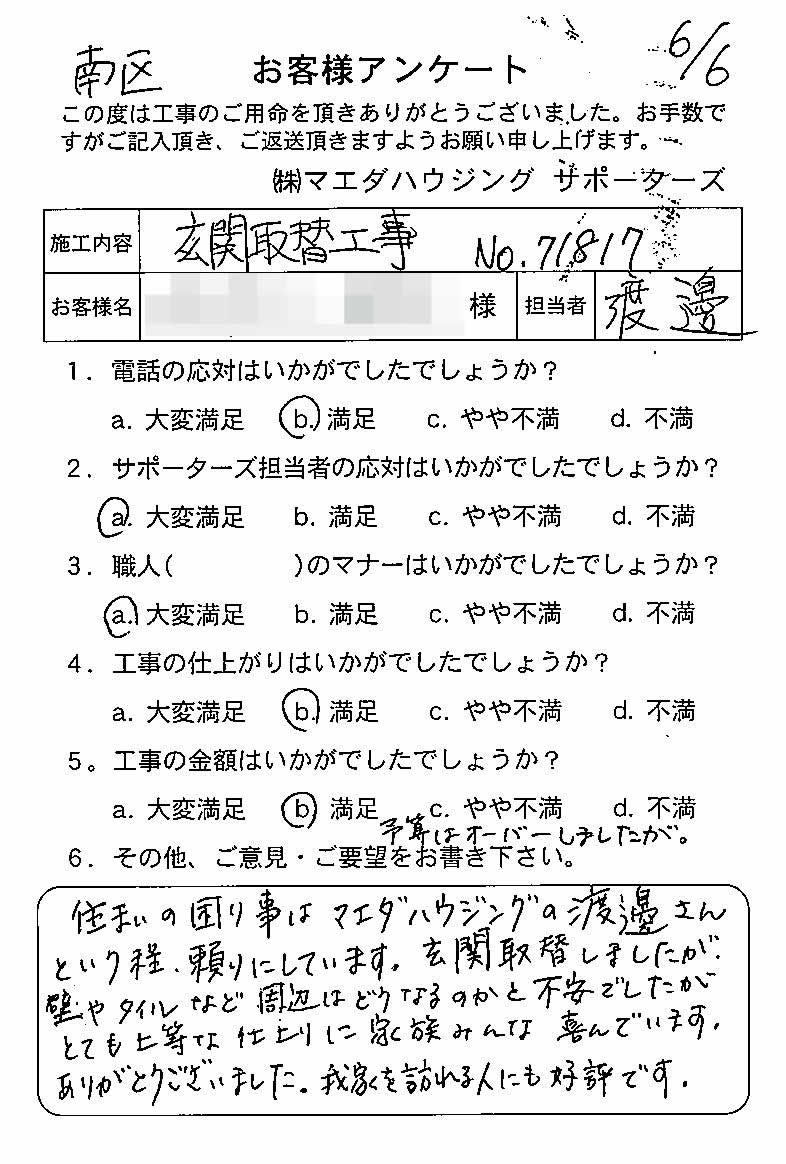 南区 お客様アンケート 6/6
この度は工事のご用命を頂きありがとうございました。お手数で
すがご記入頂き、ご返送頂きますようお願い申し上げます。
㈱マエダハウジング サポーターズ
施工内容 玄関取替工事 No.71817
お客様名 様 担当者 渡邊
1. 電話の応対はいかがでしたでしょうか?
a. 大変満足 b. 満足 c. やや不満 d. 不満
2. サポーターズ担当者の応対はいかがでしたでしょうか?
a. 大変満足 b. 満足 c. やや不満 d. 不満
3. 職人( )のマナーはいかがでしたでしょうか?
a. 大変満足 b. 満足 c. やや不満 d. 不満
4. 工事の仕上がりはいかがでしたでしょうか?
a. 大変満足 b. 満足 c. やや不満 d. 不満
5。工事の金額はいかがでしたでしょうか?
a. 大変満足 b. 満足 c. やや不満 d. 不満
予算はオーバーしましたが。
6. その他、ご意見・ご要望をお書き下さい。
住まいの困り事はマエダハウジングの渡邊さん
という程、頼りにしています。玄関取替しましたが、
壁やタイルなど周辺はどうなるのかと不安でしたが
とても上等な仕上りに家族みんな喜んでいます。
ありがとうございました。我家を訪れる人にも好評です。